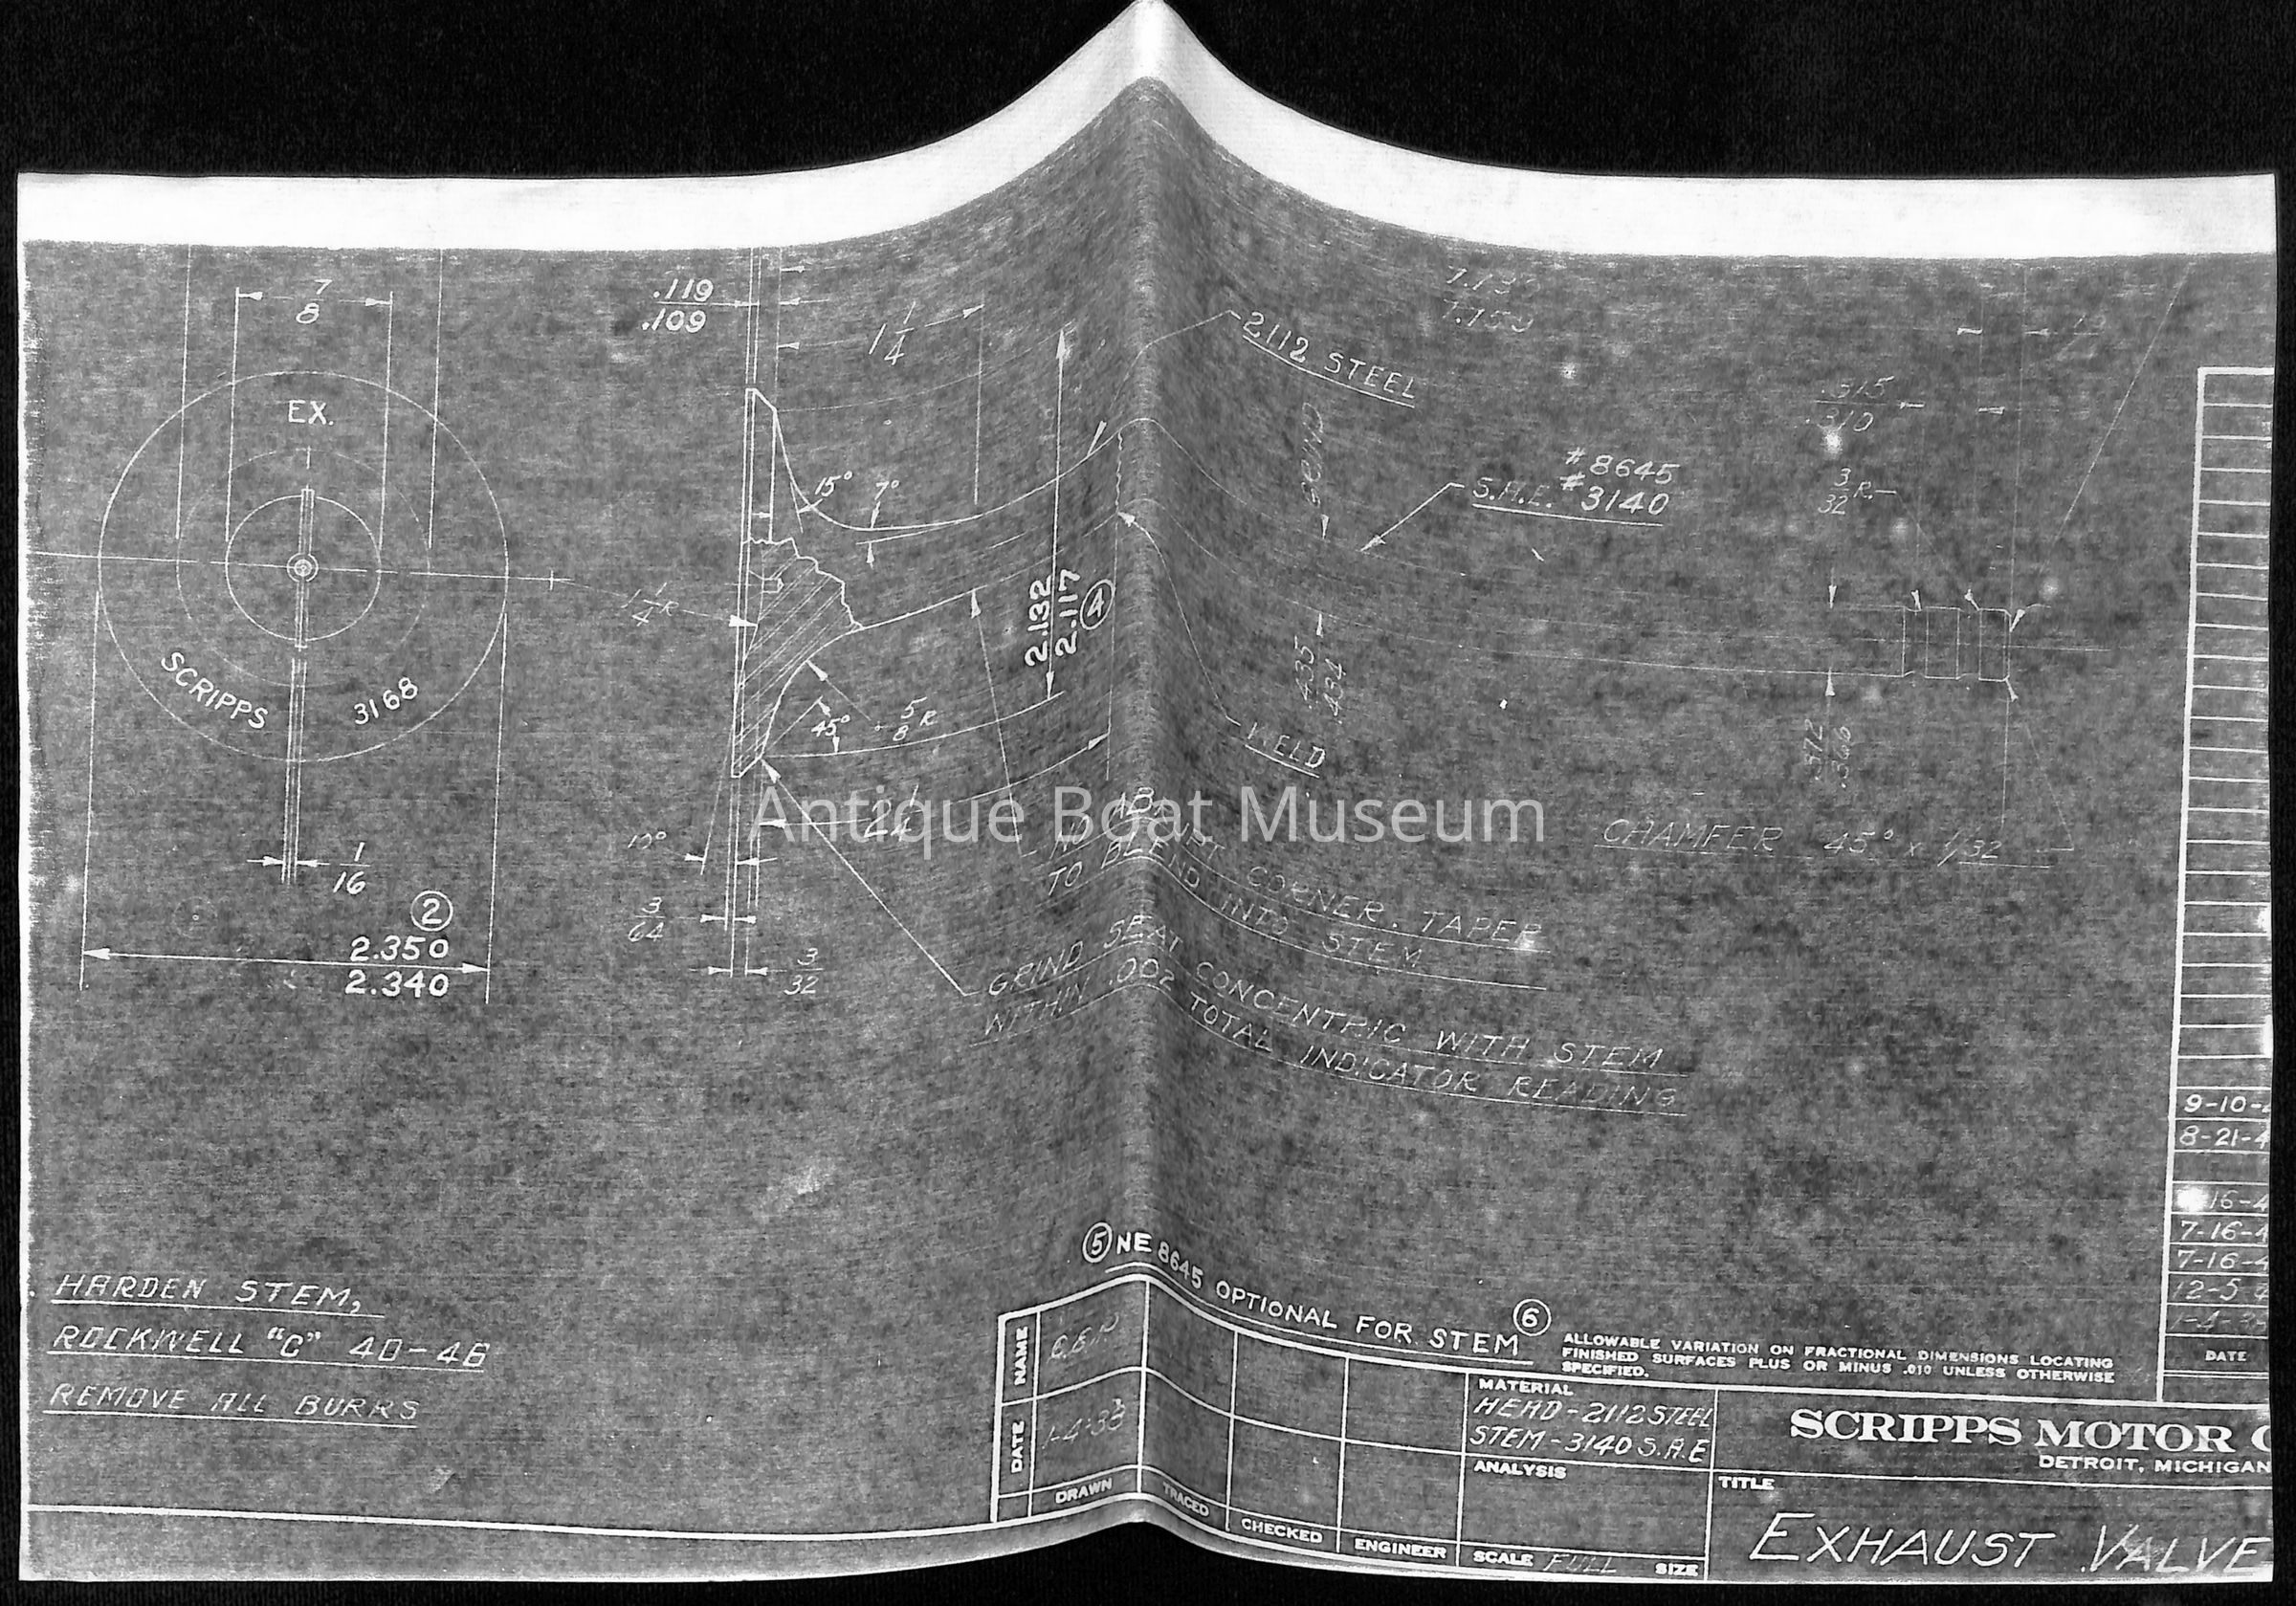 7
8
.119
.109
1 1
4
2112 STEEL
EX.
.315
.310
15°
7°
GRIND
#8645
S.A.E. #3140
3
32 R.
1 1
4 R
2.132
2.117
4
SCRIPPS
3168
45°
5
8 R
.435
.434
WELD
.372
.366
Antique Boat Museum
10°
2 1
4
CHAMFER 45° x 1/32
1
16
NO ABRUPT CORNER. TAPER
TO BLEND INTO STEM
2
3
64
2.350
2.340
3
32
GRIND SEAT CONCENTRIC WITH STEM
WITHIN .002 TOTAL INDICATOR READING
9-10-
8-21-4
16-4
7-16-4
7-16-4
12-5
DATE
HARDEN STEM,
ROCKWELL "C" 40-46
REMOVE ALL BURRS
5 NE 8645 OPTIONAL FOR STEM 6
ALLOWABLE VARIATION ON FRACTIONAL DIMENSIONS LOCATING
FINISHED SURFACES PLUS OR MINUS .010 UNLESS OTHERWISE
SPECIFIED.
NAME
DATE
1-4-38
DRAWN
TRACED
CHECKED
ENGINEER
MATERIAL
HEAD-2112 STEEL
STEM-3140 S.A.E
ANALYSIS
SCALE FULL SIZE
SCRIPPS MOTOR C
DETROIT, MICHIGAN
TITLE
EXHAUST VALVE